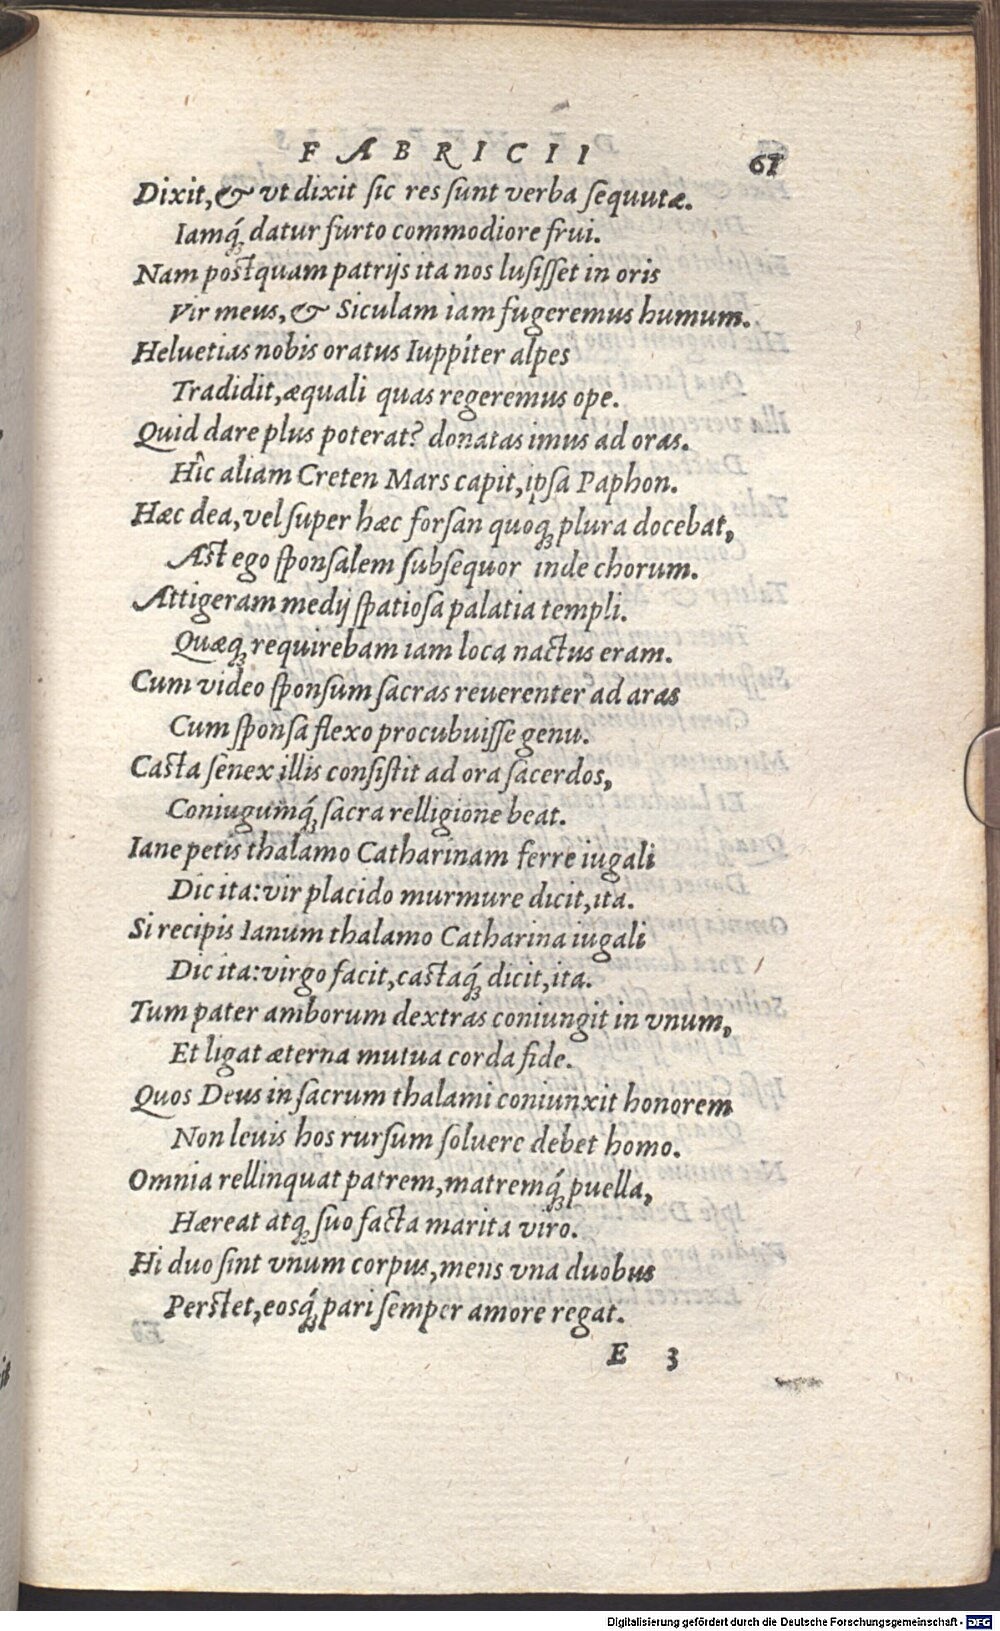 FABRICII 61
Dixit, & vt dixit sic res sunt verba sequutæ.
Iamq́; datur furto commodiore frui.
Nam postquam patrijs ita nos lusisset in oris
Vir meus, & Siculam iam fugeremus humum.
Heluetias nobis oratus Iuppiter alpes
Tradidit, æquali quas regeremus ope.
Quid dare plus poterat? donatas imus ad oras.
Hîc aliam Creten Mars capit, ipsa Paphon.
Hæc dea, vel super hæc forsan quoq; plura docebat,
Ast ego sponsalem subsequor inde chorum.
Attigeram medij spatiosa palatia templi.
Quæq; requirebam iam loca nactus eram.
Cum video sponsum sacras reuerenter ad aras
Cum sponsa flexo procubuisse genu.
Casta senex illis consistit ad ora sacerdos,
Coniugumq́; sacra relligione beat.
Iane petis thalamo Catharinam ferre iugali
Dic ita: vir placido murmure dicit, ita.
Si recipis Ianum thalamo Catharina iugali
Dic ita: virgo facit, castaq́; dicit, ita.
Tum pater amborum dextras coniungit in vnum,
Et ligat æterna mutua corda fide.
Quos Deus in sacrum thalami coniunxit honorem
Non leuis hos rursum soluere debet homo.
Omnia rellinquat patrem, matremq́; puella,
Hæreat atq; suo facta marita viro.
Hi duo sint vnum corpus, mens vna duobus
Perstet, eosq́; pari semper amore regat.
E 3
Digitalisierung gefördert durch die Deutsche Forschungsgemeinschaft - DFG